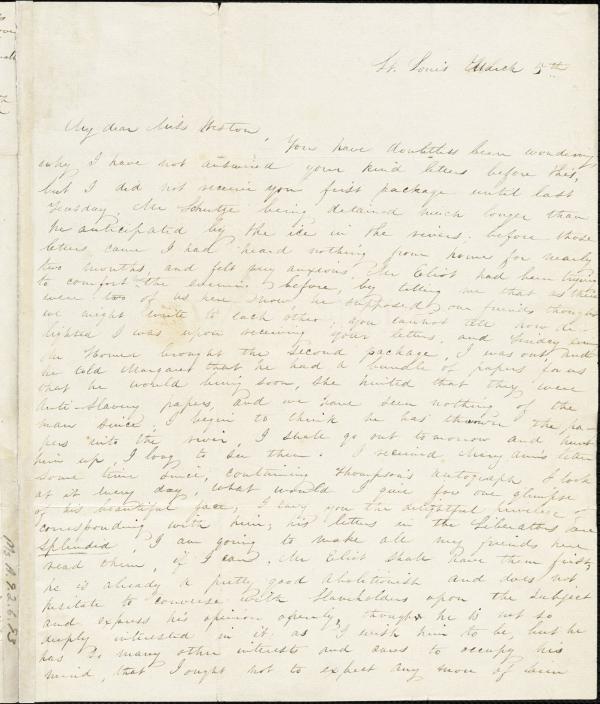 St. Louis March 5th
My dear Miss Weston,
You have doubtless been wondering
why I have not answered your kind letters before this,
but I did not receive your first package until last
Tuesday Mr Schutze being detained much longer than
he anticipated by the ice in the rivers; before those
letters came I had heard nothing from home for nearly
two months, and felt very anxious, Mr Eliot had been trying
to comfort the evening before, by telling me that as there
were two of us here now, he supposed our friends thought
we might write to each other; you cannot tell how de-
lighted I was upon receiving your letters, and Sunday even
Mr Homer brought the second package, I was out, and
he told Margaret that he had a bundle of papers for us
that he would bring soon, she hinted that they were
Anti-Slavery papers, and we have seen nothing of the
man since, I begin to think he has thrown the pa-
pers into the river, I shall go out tomorrow and hunt
him up, I long to see them. I received Mary Ann's letter
some time since, containing Thompson's autograph, I look
at it every day, what would I give for one glimpse
of his beautiful face; I envy you the delightful privilege of
corresponding with him; his letters in the Liberator are
splendid, I am going to make all my friends here
read them, if I can. Mr Eliot shall have them first,
he is already a pretty good Abolitionist and does not
hesitate to converse with Slaveholders upon the subject
and express his opinion openly, though he is not so
deeply interested in it as I wish him to be, but he
has so many other interests and cares to occupy his
mind, that I ought not to expect any more of him
Ms. A.9.2.6.13